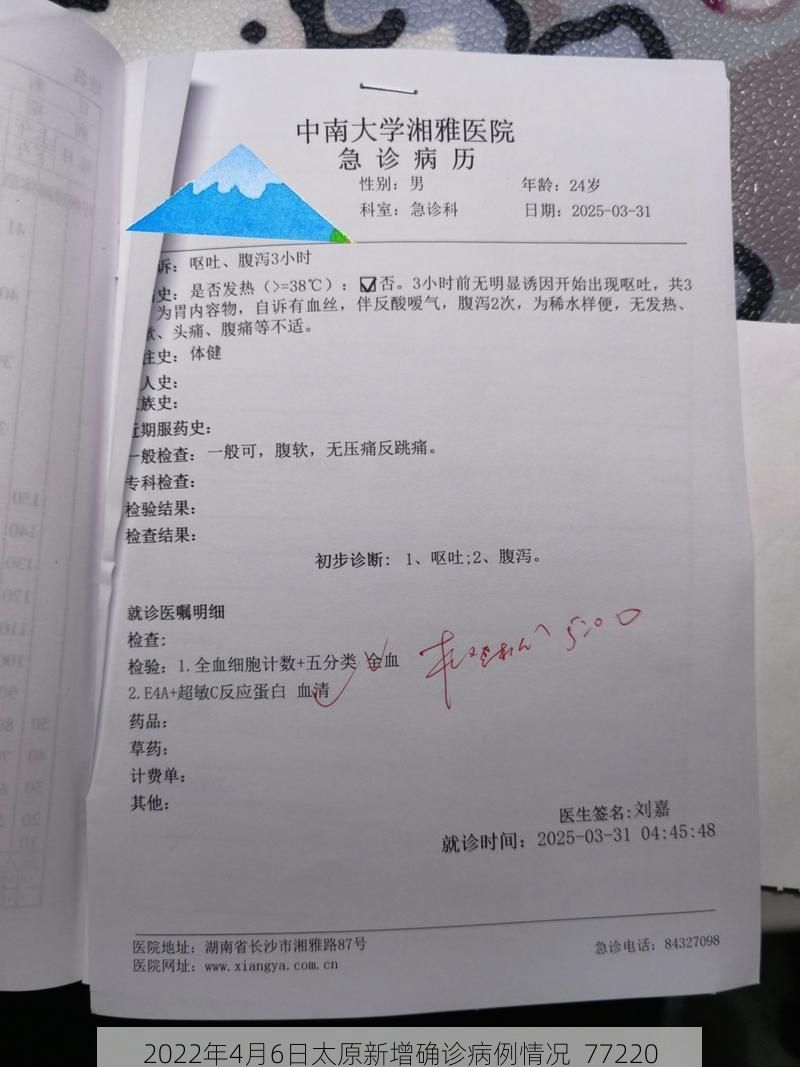 中南大学湘雅医院
急诊病历
性别：男 年龄：24岁
科室：急诊科 日期：2025-03-31
诉：呕吐、腹泻3小时
史：是否发热（>=38℃）：☑否。3小时前无明显诱因开始出现呕吐，共3
为胃内容物，自诉有血丝，伴反酸嗳气，腹泻2次，为稀水样便，无发热、
、头痛、腹痛等不适。
往史：体健
人史：
族史：
近期服药史：
一般检查：一般可，腹软，无压痛反跳痛。
专科检查：
检验结果：
检查结果：
初步诊断：1、呕吐;2、腹泻。
就诊医嘱明细
检查：
检验：1.全血细胞计数+五分类 全血
2.E4A+超敏C反应蛋白 血清
5:00
药品：
草药：
计费单：
其他：
医生签名:刘嘉
就诊时间：2025-03-31 04:45:48
医院地址：湖南省长沙市湘雅路87号 急诊电话：84327098
医院网址：www.xiangya.com.cn
2022年4月6日太原新增确诊病例情况 77220